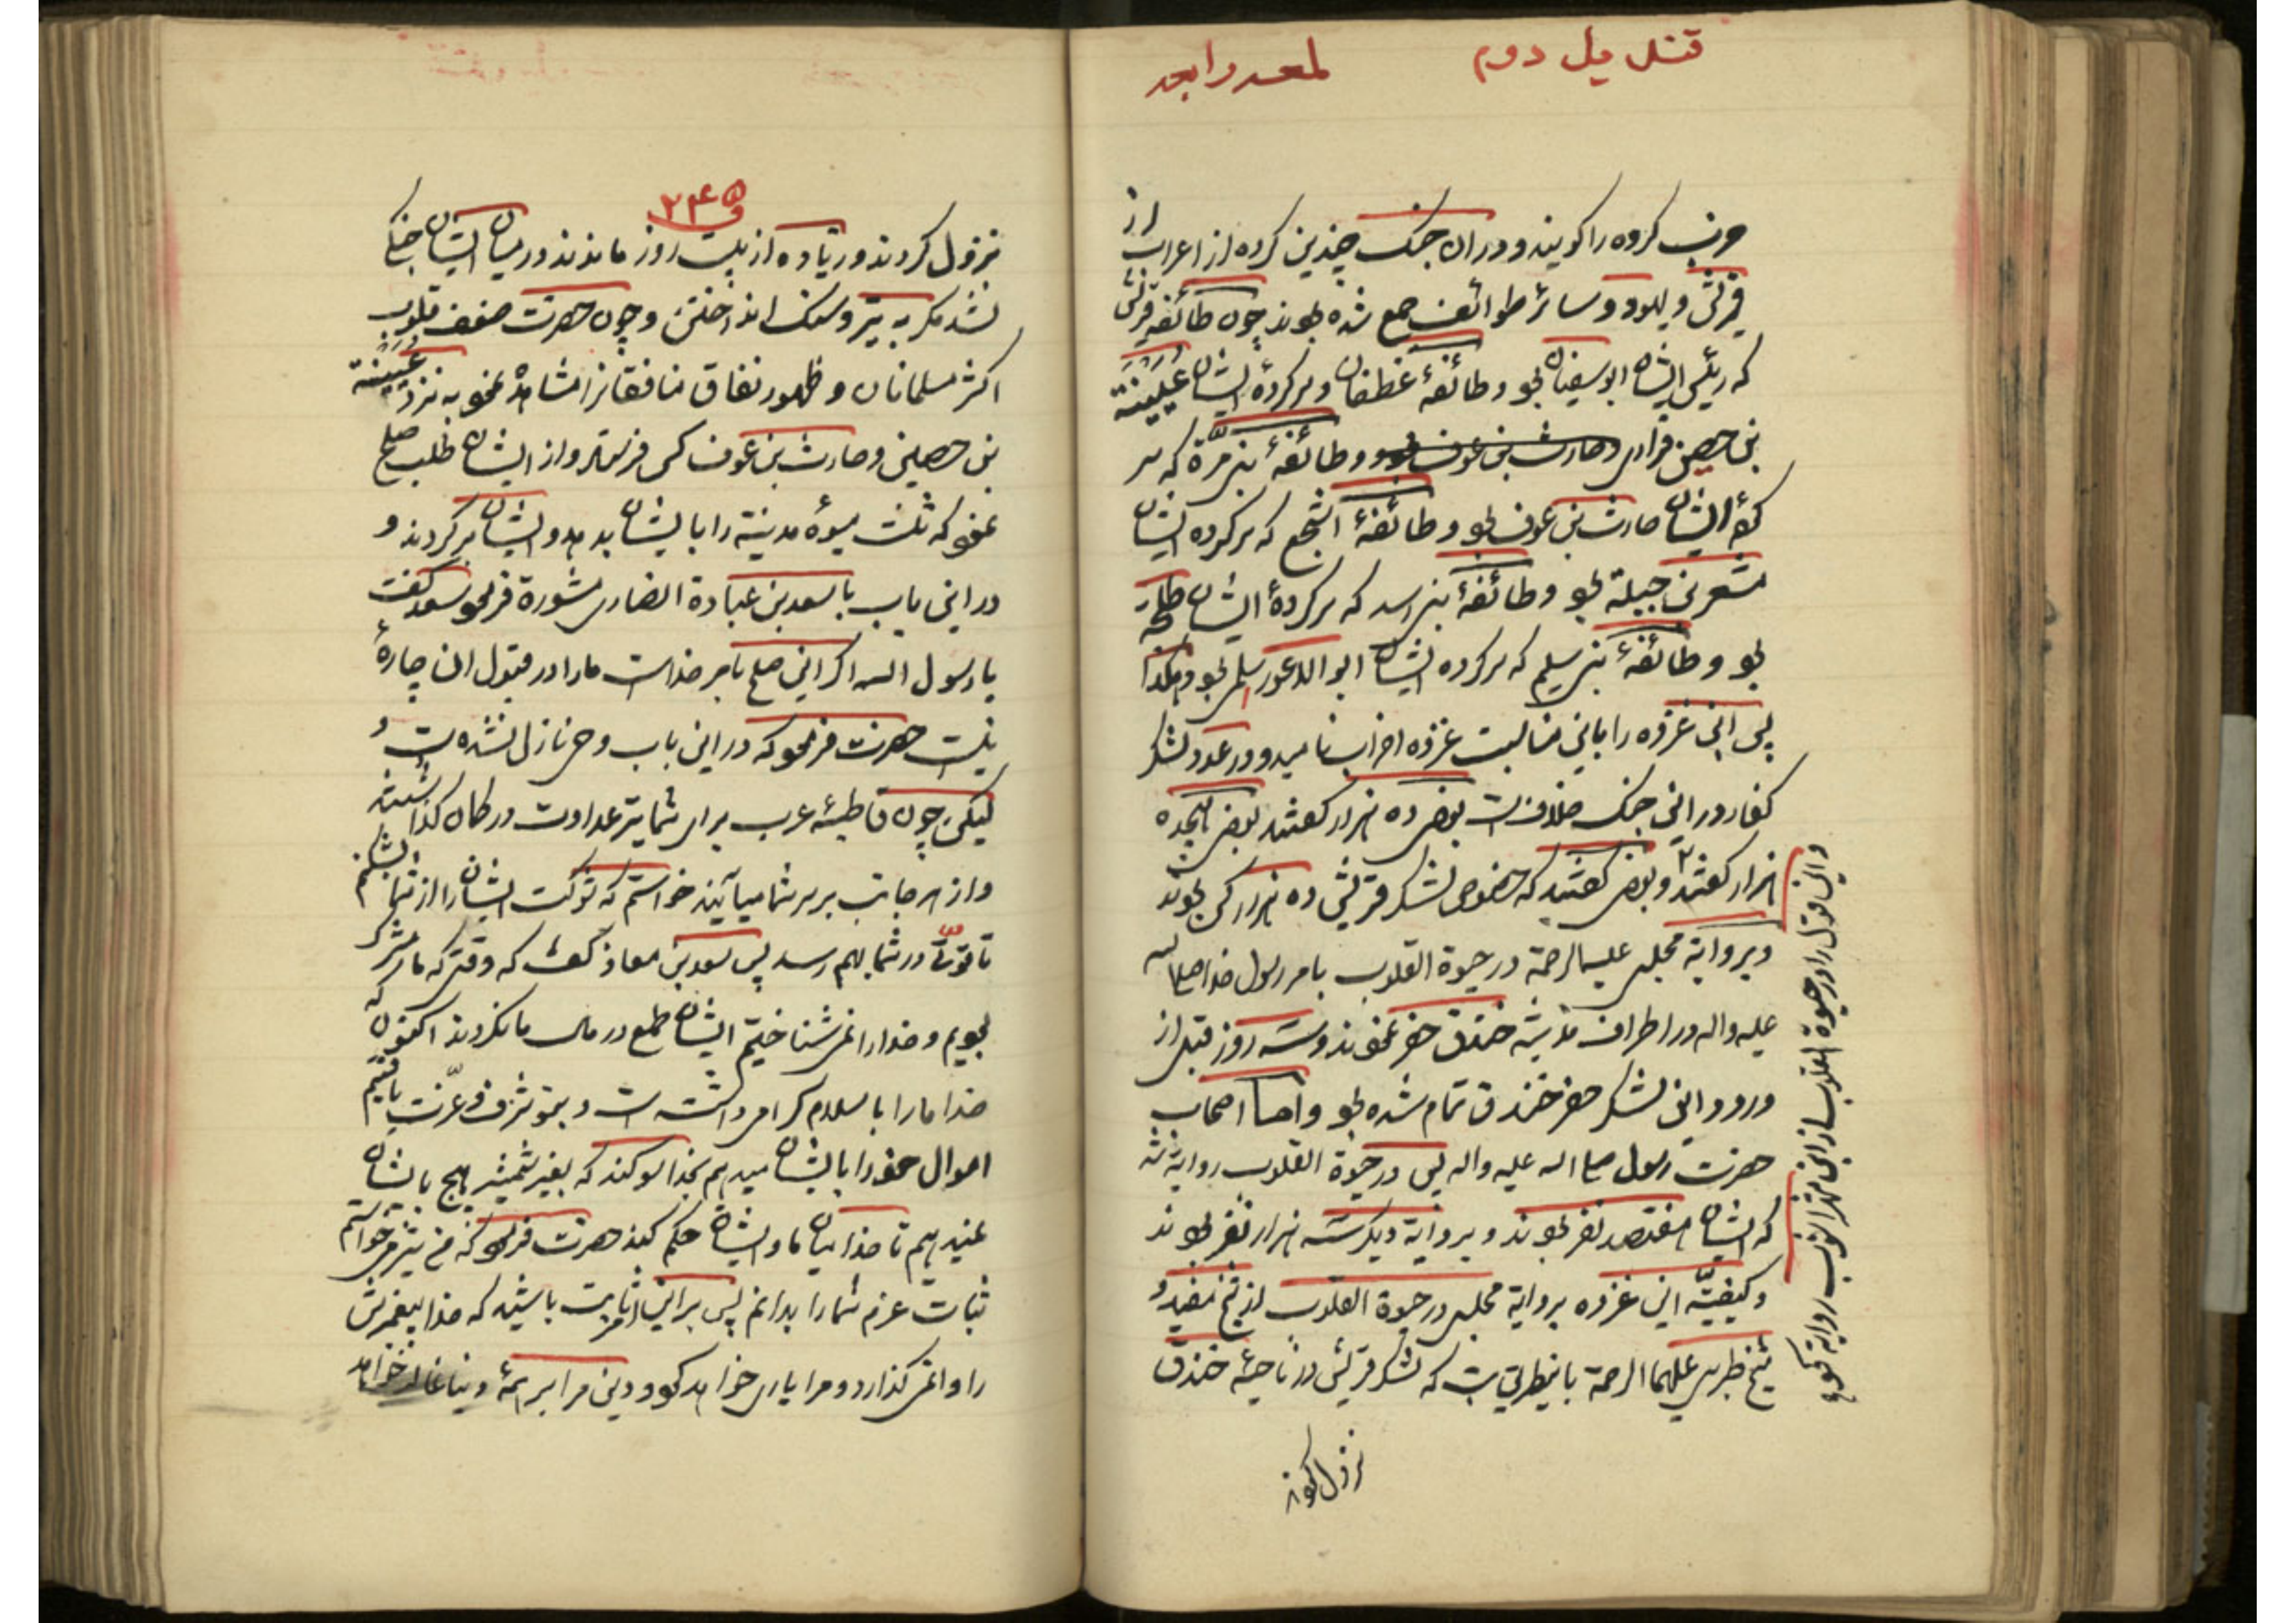 قتل یل دوم
حزب کروه را کویند و در ان جنک چندین کروه از اعراب از
قریش و یهود و سائر طوائف جمع شده بودند چون طائفه قریش
که رئیس ایشان ابوسفیان بود و طائفهٔ غطفان و سرکردهٔ ایشان عیینة
بن حصن فزاری و حارث بن عوف بود و طائفهٔ بنی مرّة که سر
کردهٔ ایشان حارث بن عوف بود و طائفهٔ اشجع که سرکرده ایشان
مسعر بن جبلة بود و طائفهٔ بنی اسد که سرکردهٔ ایشان طلحة
بود و طائفهٔ بنی سلیم که سرکرده ایشان ابو الاعور سلمی بود و هکذا
پس این غزوه را باین مناسبت غزوه احزاب نامیدند و در عدد لشکر
کفار در این جنک خلافست بعضی ده هزار کفتند بعضی هیجده
هزار کفتند و بعضی کفتند که خصوص لشکر قریش ده هزار کس بودند
و بروایة مجلسی علیه الرحمة در حیوة القلوب بامر رسول خدا صلی الله
علیه واله در اطراف مدینه خندق حفر نمودند و سه روز قبل از
ورود این لشکر حفر خندق تمام شده بود و اما اصحاب
حضرت رسول صلی الله علیه واله پس در حیوة القلوب روایة شده
که ایشان هفتصد نفر بودند و بروایة دیکر سه هزار نفر بودند
و کیفیّه این غزوه بروایة مجلسی در حیوة القلوب از شیخ مفید و
شیخ طبرسی علیهما الرحمة باینطریق است که لشکر قریش در ناحیهٔ خندق
نزول کردند
و این قول را در حیوة القلوب از ابن شهراشوب روایة نموده
۲۴۵
نزول کردند و زیاده از بیست روز ماندند و در میان ایشان جنکی
نشد مکر به تیر و سنک انداختن و چون حضرت ضعف قلوب
اکثر مسلمانان و ظهور نفاق منافقانرا مشاهده نمود به نزد عیینة
بن حصین و حارث بن عوف کس فرستاد و از ایشان طلب صلح
نمود که ثلث میوهٔ مدینة را بایشان بدهد و ایشان برکردند و
در این باب با سعد بن عبادة انصاری مشورة فرمود سعد کفت
یا رسول الله اکر این صلح بامر خداست ما را در قبول ان چارهٔ
نیست حضرت فرمود که در این باب وحی نازل نشده است و
لیکن چون قاطبهٔ عرب برای شما تیر عداوت در کمان کذاشته اند
و از هر جانب بر سر شما میآیند خواستم که شوکت ایشان را از شما بشکنم
تا قوتّی در شما بهم رسد پس سعد بن معاذ کفت که وقتی که ما مشرک
بودیم و خدا را نمی شناختیم ایشان طمع در مال ما نکردند اکنون که
خدا ما را باسلام کرامی داشته است و بتو شرف و عزّت یافتیم
اموال خود را بایشان میدهیم بخدا سوکند که بغیر شمشیر هیچ بایشان
نمیدهیم تا خدا میان ما و ایشان حکم کند حضرت فرمود که من نیز میخواستم
ثبات عزم شما را بدانم پس بر این ثابت باشید که خدا پیغمبرش
را وانمی کذارد و مرا یاری خواهد کرد و دین مرا بر همهٔ دینها غالب خواهد